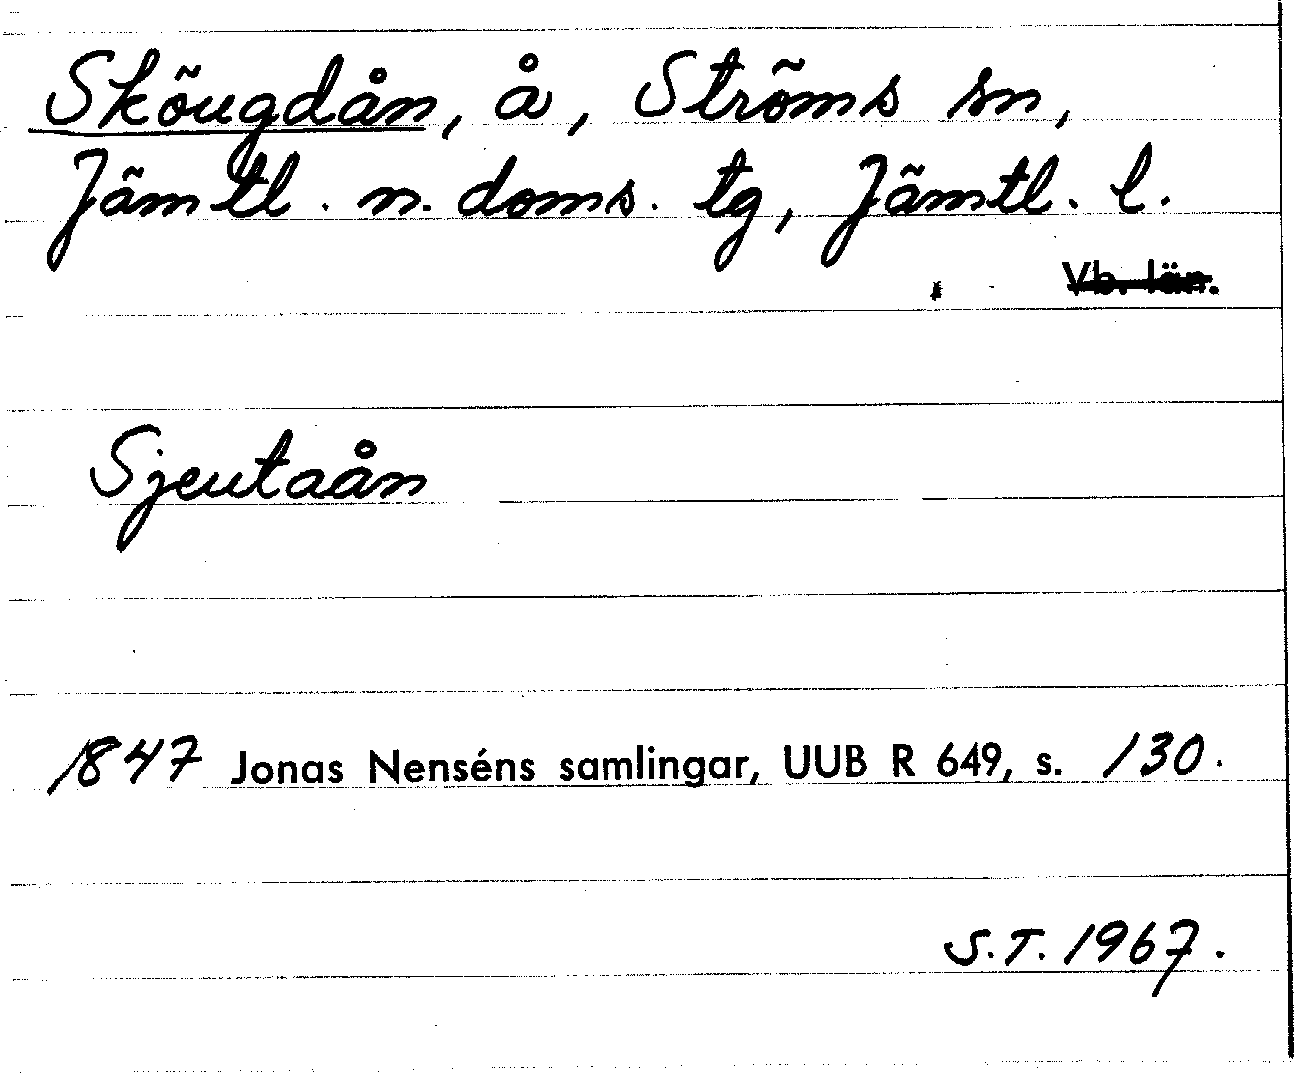 Sköugdån, å, Ströms sn,
Jämtl. n. doms. tg, Jämtl. l.
Vb. län.
Sjeutaån
1847 Jonas Nenséns samlingar, UUB R 649, s. 130.
S.T. 1967.